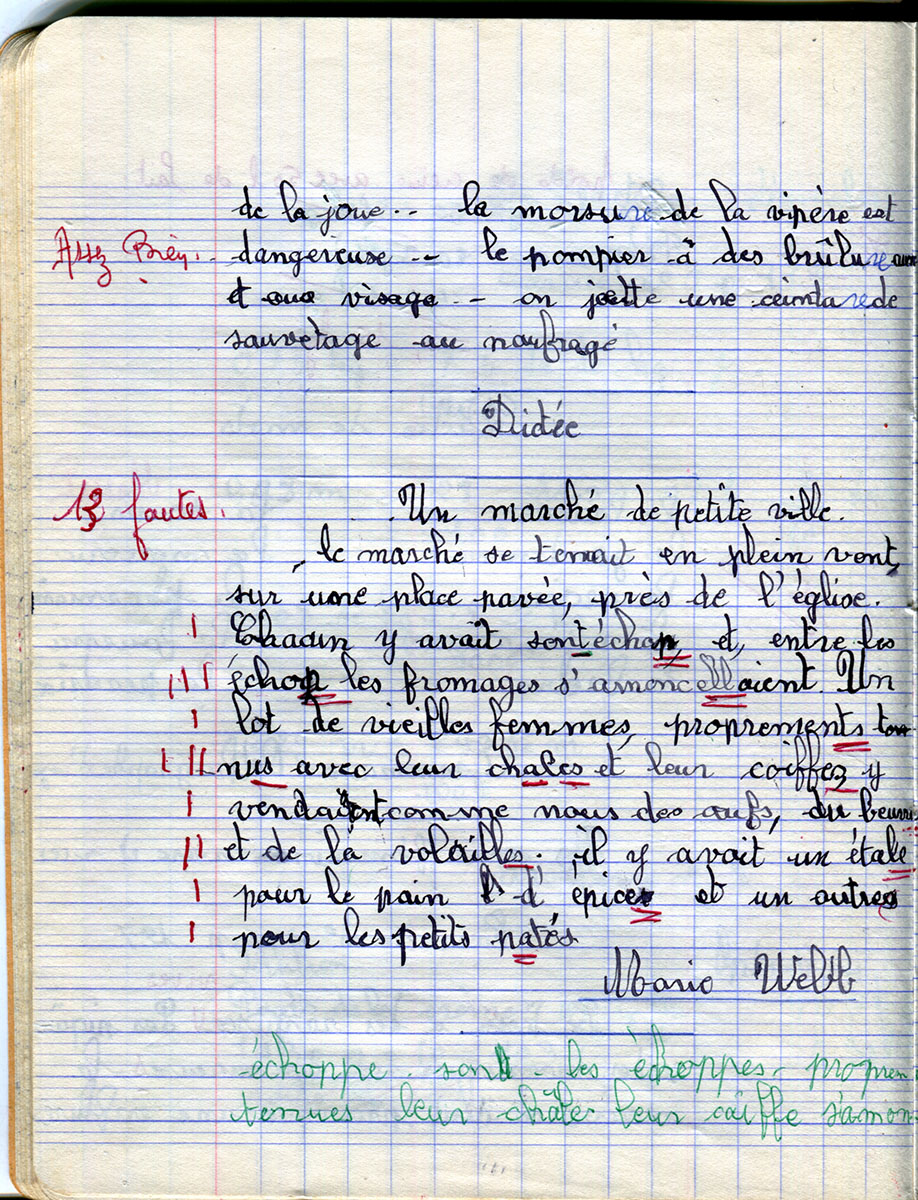 de la joue.. la morsure de la vipère est
Assez Bien. dangereuse -- le pompier à des brûlure aux
et aux visage -- on jette une ceinture de
sauvetage au naufragé
Dictée
13 fautes. Un marché de petite ville.
le marché se tenait en plein vent,
sur une place pavée, près de l'église.
Chacun y avait sont échop, et, entre les
échop les fromages s'amoncellaient. Un
lot de vieilles femmes, proprements te
nus avec leur chales et leur coiffez y
vendaient comme nous des œufs, du beurre
et de la volailles. il y avait un étale
pour le pain d'épices et un autres
pour les petits patés
Marie
échoppe - son - les échoppes - propren
tenues leur châle leur coiffe s'amon